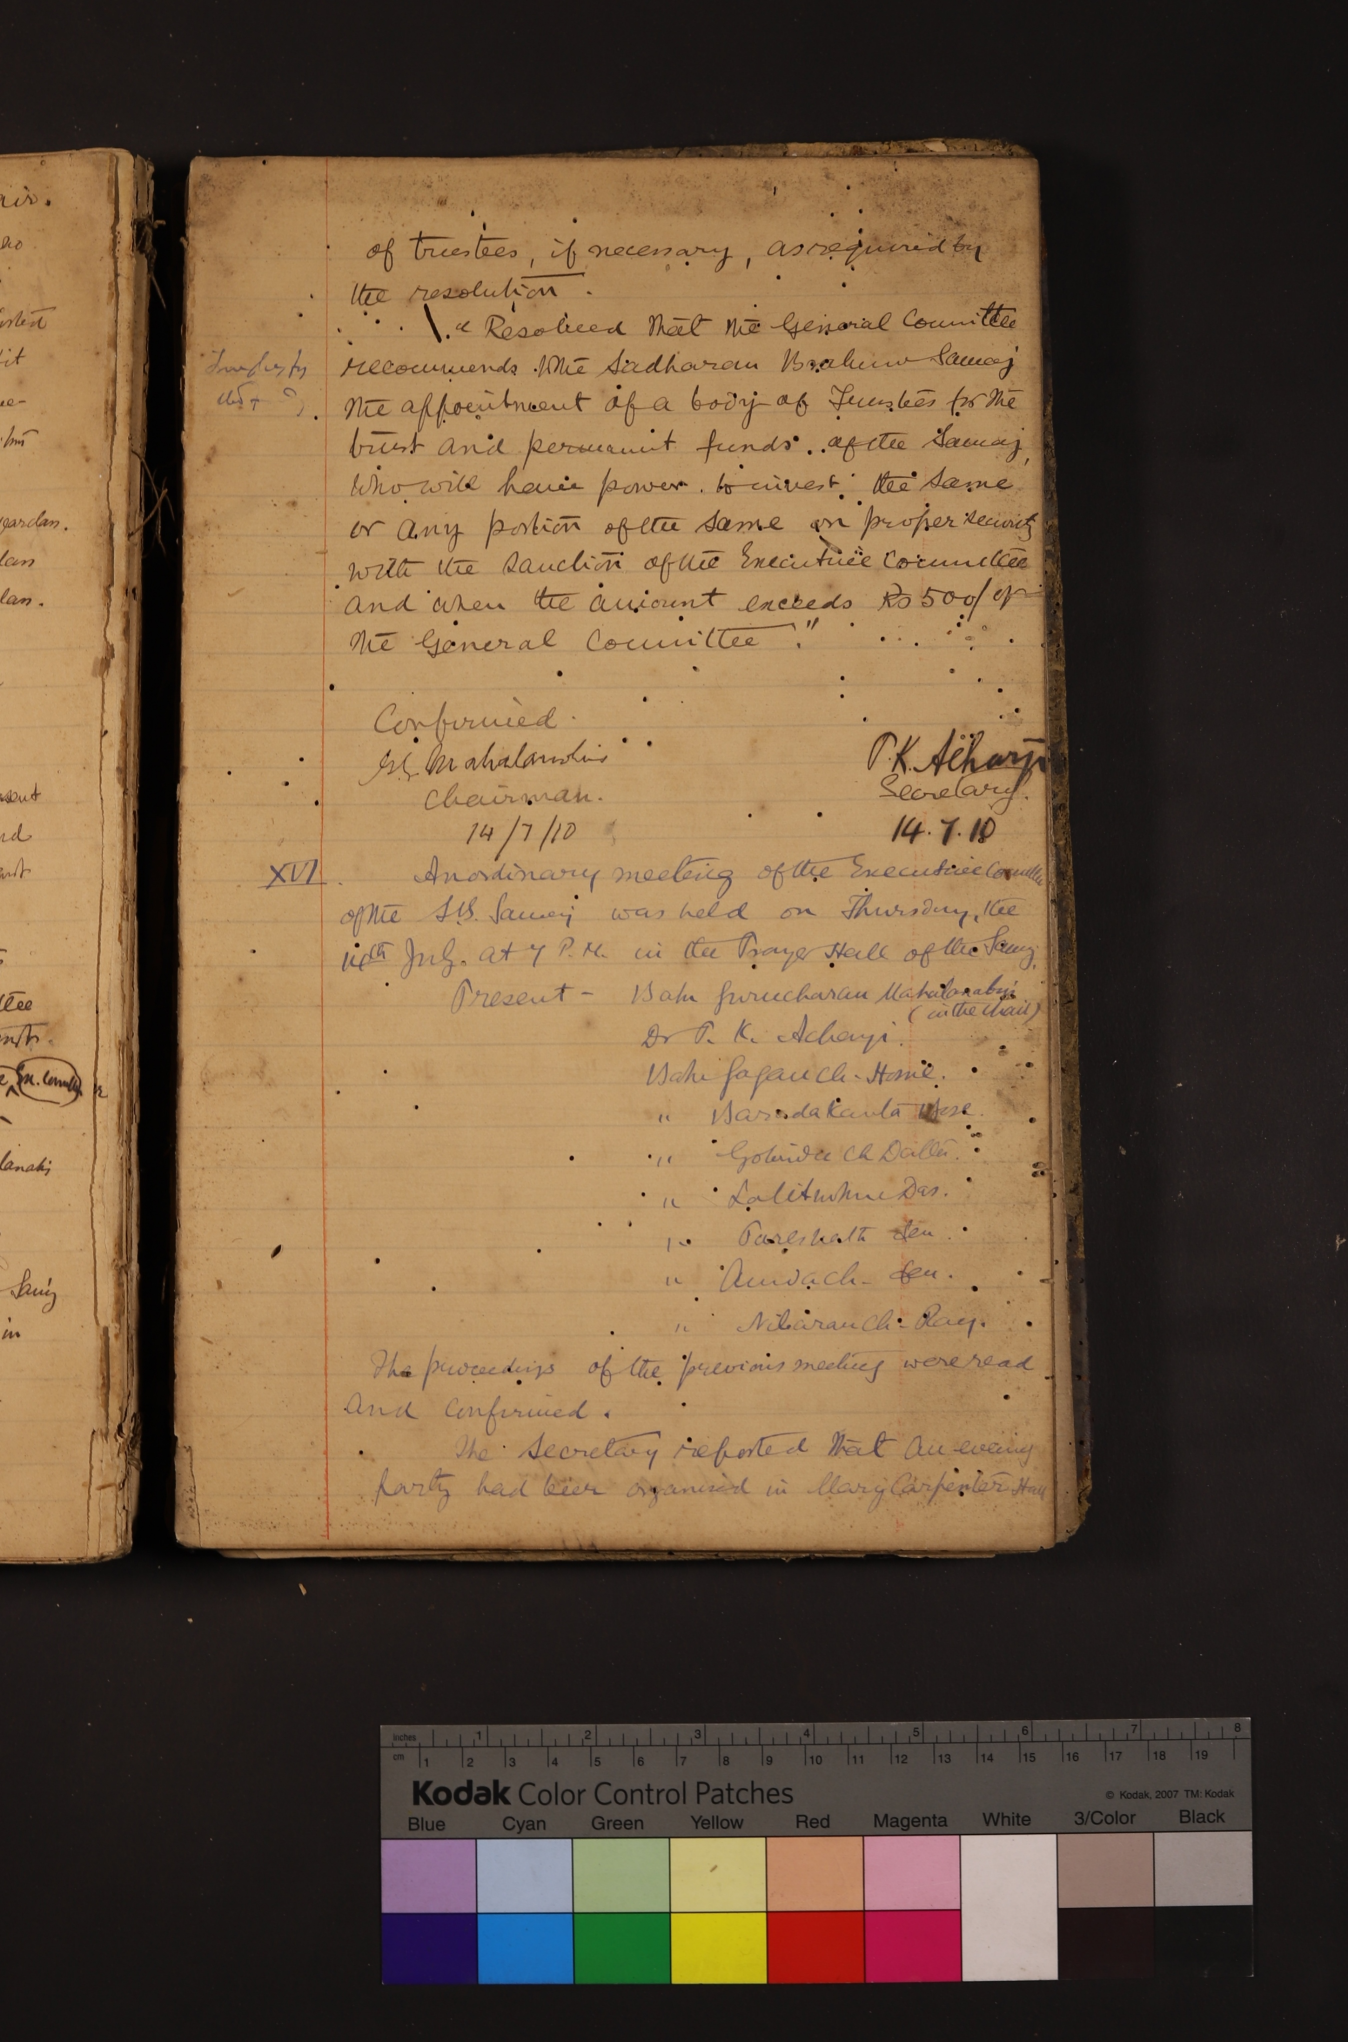 of trustees, if necessary, as required by
the resolution.
" Resolved that the General Committee
recommends to the Sadharan Brahmo Samaj
the appointment of a body of Trustees for the
trust and permanent funds of the Samaj,
who will have power to invest the same
or any portion of the same on proper security
with the sanction of the Executive Committee
and when the amount exceeds Rs 500/ of
the General Committee."
Confirmed.
G. C. Mahalanobis
Chairman.
14/7/10
P. K. Acharji
Secretary.
14.7.10
XVI. An ordinary meeting of the Executive Committee
of the S.B. Samaj was held on Thursday, the
14th July. at 7 P.M. in the Prayer Hall of the Samaj.
Present - Babu Gurucharan Mahalanabis
(in the chair)
Dr P. K. Acharji.
Babu Gagan Ch. Home.
" Barada Kanta Bose.
" Gobinda Ch Dutta.
" Lalit Mohan Das.
" Pareshnath Sen.
" Annada Ch. Sen.
" Nibaran Ch. Ray.
The proceedings of the previous meeting were read
and confirmed.
The Secretary reported that an evening
party had been organised in Mary Carpenter Hall
inches 1 2 3 4 5 6 7 8
cm 1 2 3 4 5 6 7 8 9 10 11 12 13 14 15 16 17 18 19
Kodak Color Control Patches
© Kodak, 2007 TM: Kodak
Blue Cyan Green Yellow Red Magenta White 3/Color Black